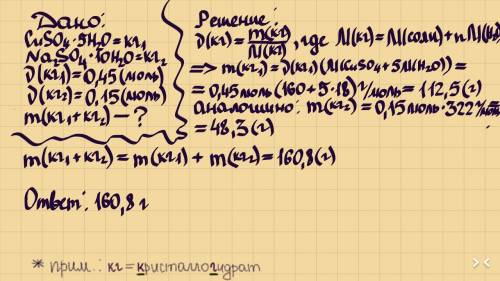 Дано:
CuSO₄·5H₂O=кг₁
Na₂SO₄·10H₂O=кг₂
ν(кг₁)=0,45(моль)
ν(кг₂)=0,15(моль)
m(кг₁+кг₂)—?
Решение:
ν(кг)=m(кг)/M(кг), где M(кг)=M(соли)+nM(H₂
=> m(кг₁)=ν(кг₁)(M(CuSO₄+5M(H₂O))=
=0,45моль(160+5·18)г/моль=112,5(г)
аналогично: m(кг₂)=0,15моль·322г/моль=
=48,3(г)
m(кг₁+кг₂)=m(кг₁)+m(кг₂)=160,8(г)
Ответ: 160,8 г
* прим.: кг=кристаллогидрат